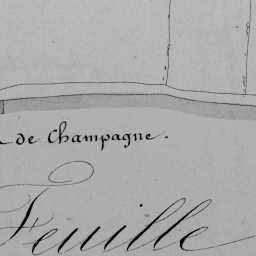 de Champagne.
Feuille